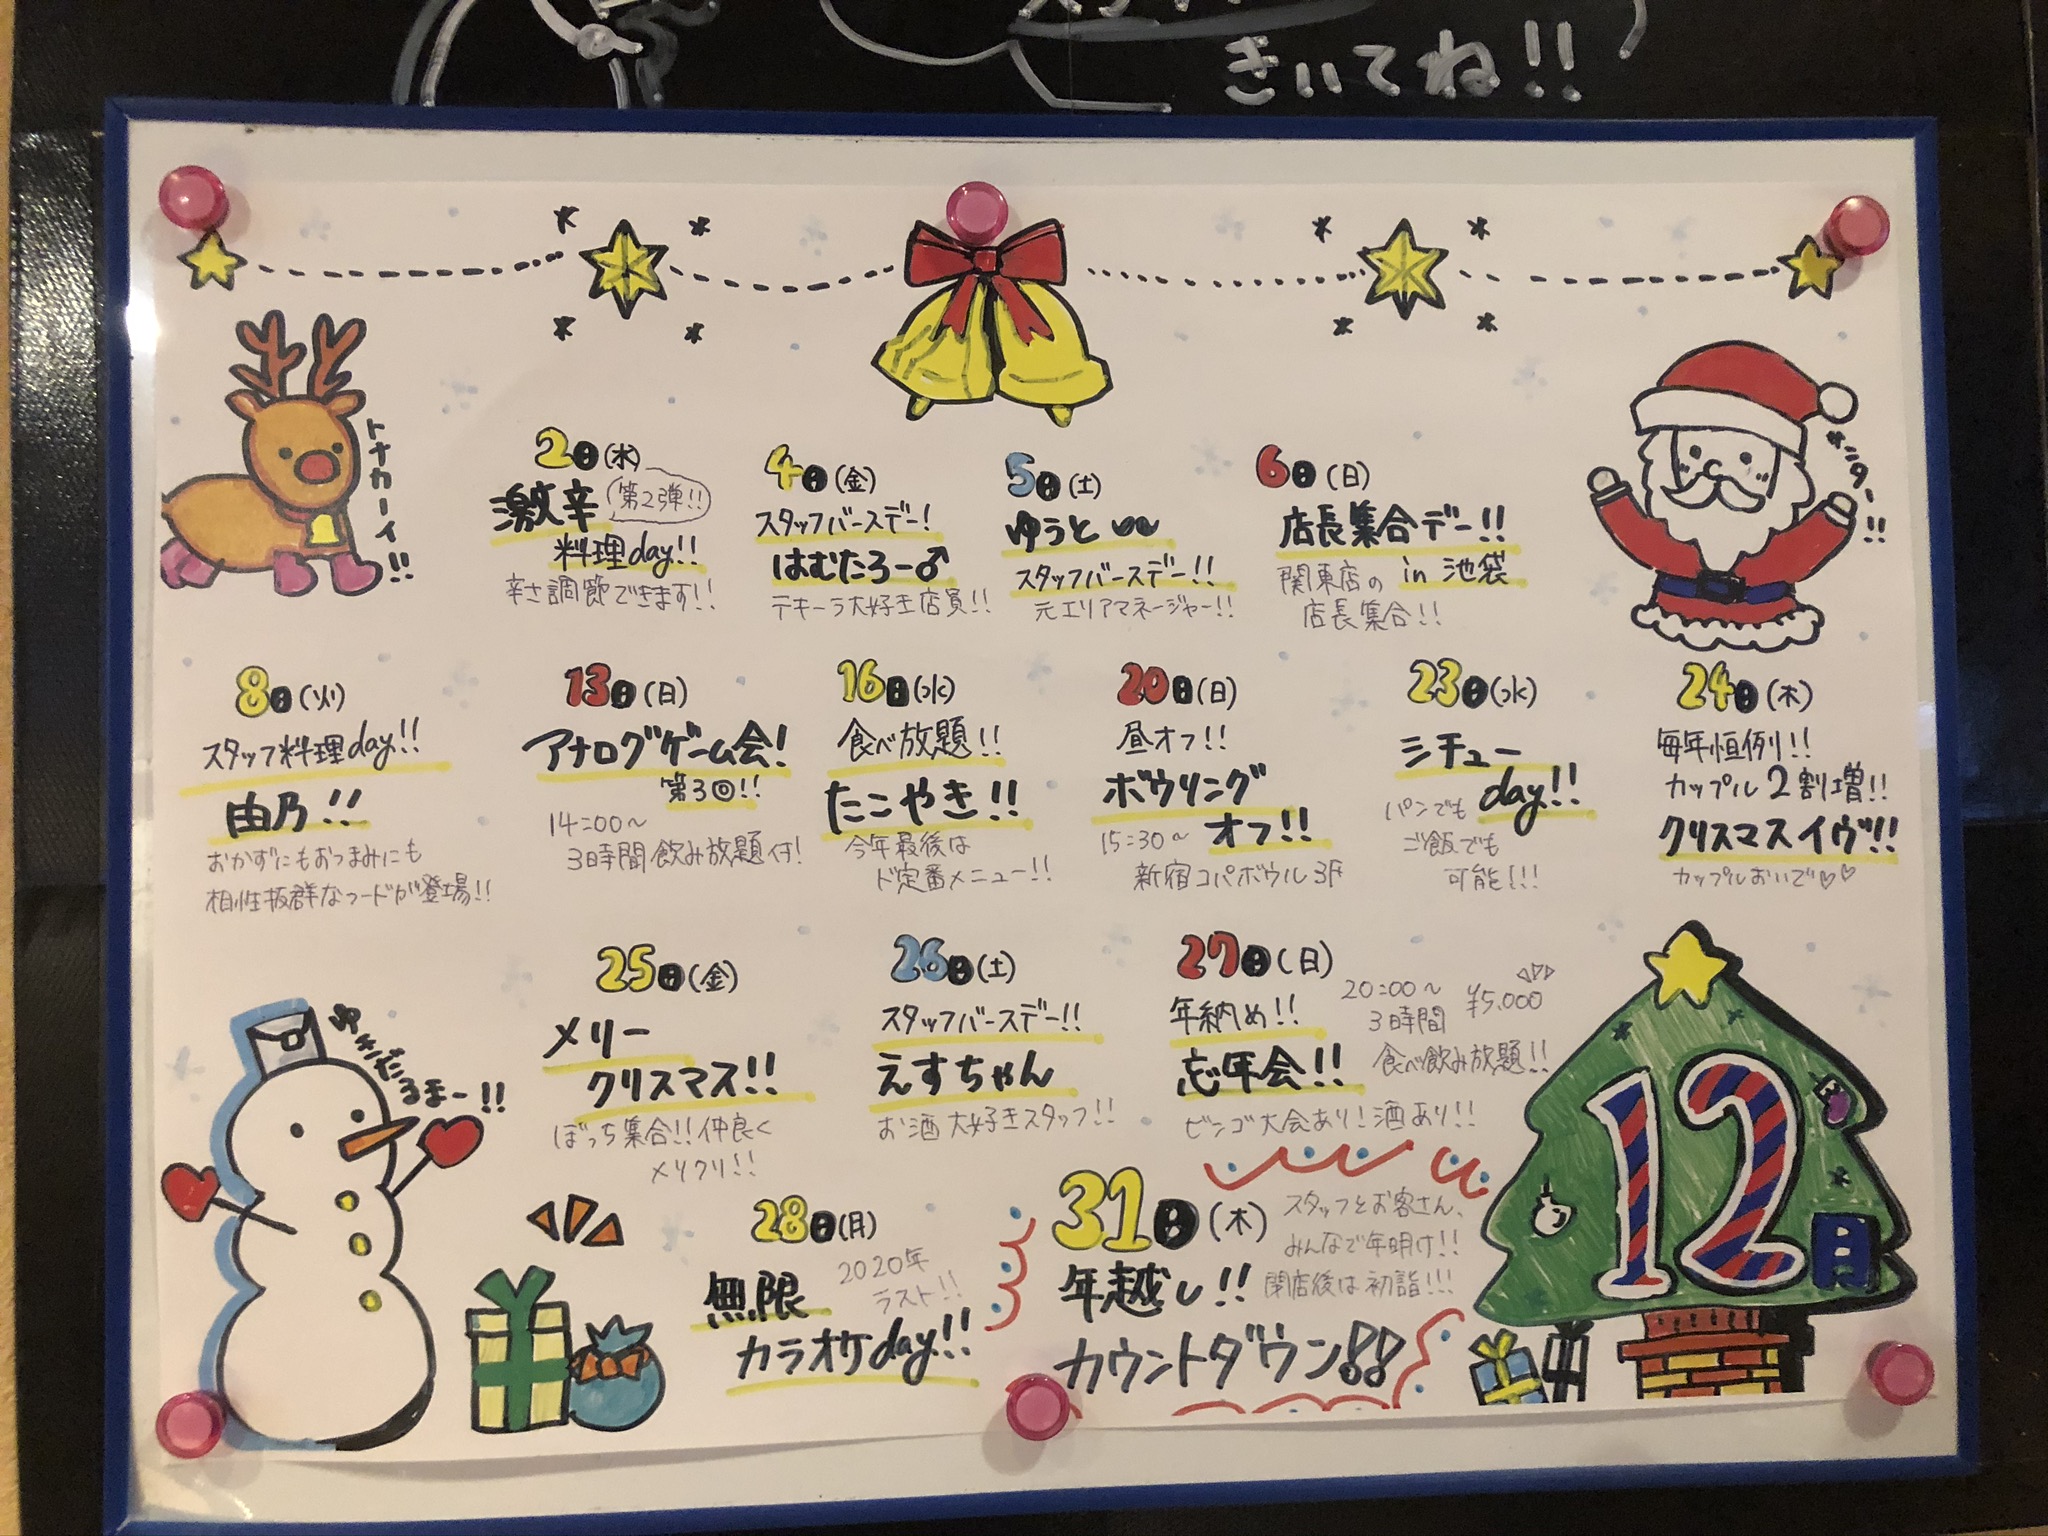 きいてね!!
トナカーイ!!
サンタ-!!
2日(水)
第2弾!!
激辛
料理day!!
辛さ調節できます!!
4日(金)
スタッフバースデー!
はむたろー♂
テキーラ大好き店員!!
5日(土)
ゆうと
スタッフバースデー!!
元エリアマネージャー!!
6日(日)
店長集合デー!!
in 池袋
関東店の
店長集合!!
8日(火)
スタッフ料理day!!
由乃!!
おかずにもおつまみにも
相性抜群なフードが登場!!
13日(日)
アナログゲーム会!
第3回!!
14:00〜
3時間飲み放題付!
16日(水)
食べ放題!!
たこやき!!
今年最後は
ド定番メニュー!!
20日(日)
昼オフ!!
ボウリング
オフ!!
15:30〜
新宿コパボウル3F
23日(水)
シチュー
day!!
パンでも
ご飯でも
可能!!!
24日(木)
毎年恒例!!
カップル2割増!!
クリスマスイヴ!!
カップルおいで♡♡
25日(金)
メリー
クリスマス!!
ぼっち集合!!仲良く
メリクリ!!
26日(土)
スタッフバースデー!!
えすちゃん
お酒大好きスタッフ!!
27日(日)
年納め!!
忘年会!!
20:00〜
3時間 ¥5,000
食べ飲み放題!!
ビンゴ大会あり!酒あり!!
ゆきだるまー!!
28日(月)
2020年
ラスト!!
無限
カラオケday!!
31日(木)
年越し!!
カウントダウン!!
スタッフとお客さん、
みんなで年明け!!
閉店後は初詣!!!
12月